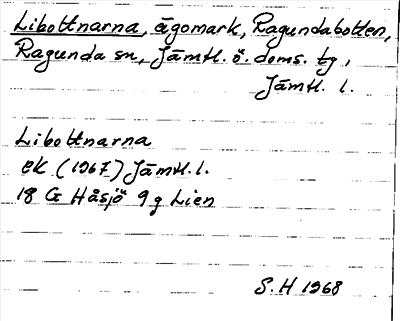 Libottnarna, ägomark, Ragundabotten,
Ragunda sn, Jämtl. ö. doms. tg,
Jämtl. l.
Libottnarna
ek (1967) Jämtl. l.
18 G Håsjö 9 g Lien
S.H 1968